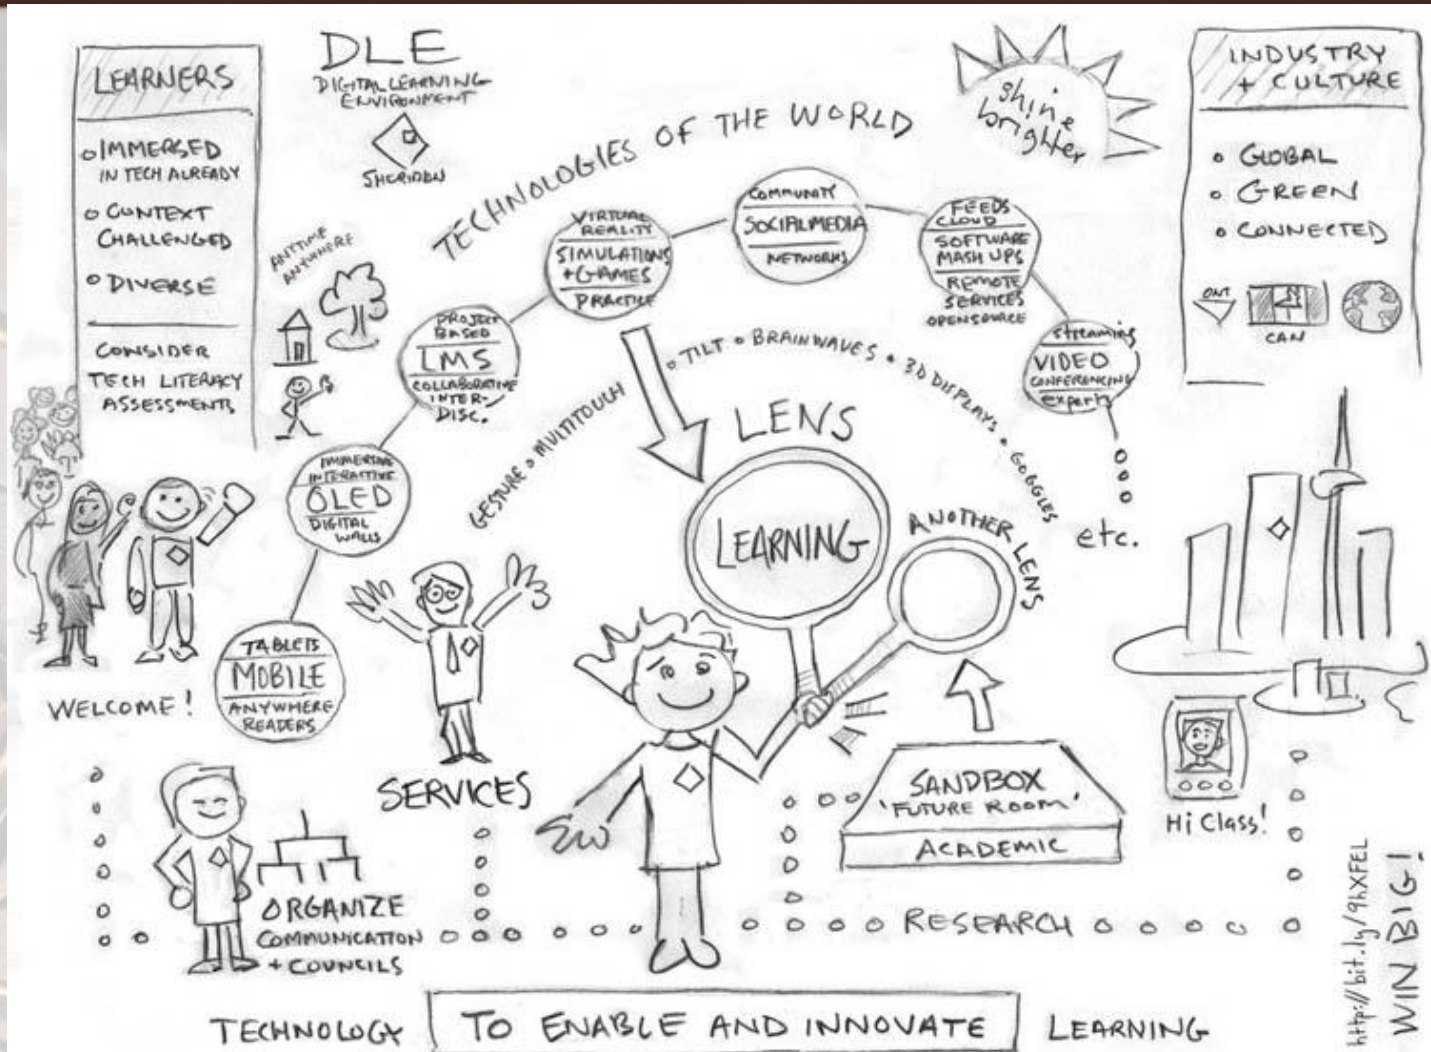 LEARNERS
IMMERSED
IN TECH ALREADY
CONTEXT
CHALLENGED
DIVERSE
CONSIDER
TECH LITERACY
ASSESSMENTS
DLE
DIGITAL LEARNING
ENVIRONMENT
SHERIDAN
ANYTIME
ANYWHERE
TECHNOLOGIES OF THE WORLD
shine
brighter
INDUSTRY
+ CULTURE
GLOBAL
GREEN
CONNECTED
ONT
CAN
TABLETS
MOBILE
ANYWHERE
READERS
IMMERSIVE
INTERACTIVE
OLED
DIGITAL
WALLS
PROJECT
BASED
LMS
COLLABORATIVE
INTER-
DISC.
VIRTUAL
REALITY
SIMULATIONS
+ GAMES
PRACTICE
COMMUNITY
SOCIAL MEDIA
NETWORKS
FEEDS
CLOUD
SOFTWARE
MASH UPS
REMOTE
SERVICES
OPENSOURCE
streaming
VIDEO
CONFERENCING
experts
etc.
GESTURE • MULTITOUCH • TILT • BRAINWAVES • 3D DISPLAYS • GOGGLES
LENS
LEARNING
ANOTHER LENS
WELCOME!
SERVICES
ORGANIZE
COMMUNICATION
+ COUNCILS
SANDBOX
'FUTURE ROOM'
ACADEMIC
Hi Class!
RESEARCH
http://bit.ly/9hXFEL
WIN BIG!
TECHNOLOGY TO ENABLE AND INNOVATE LEARNING